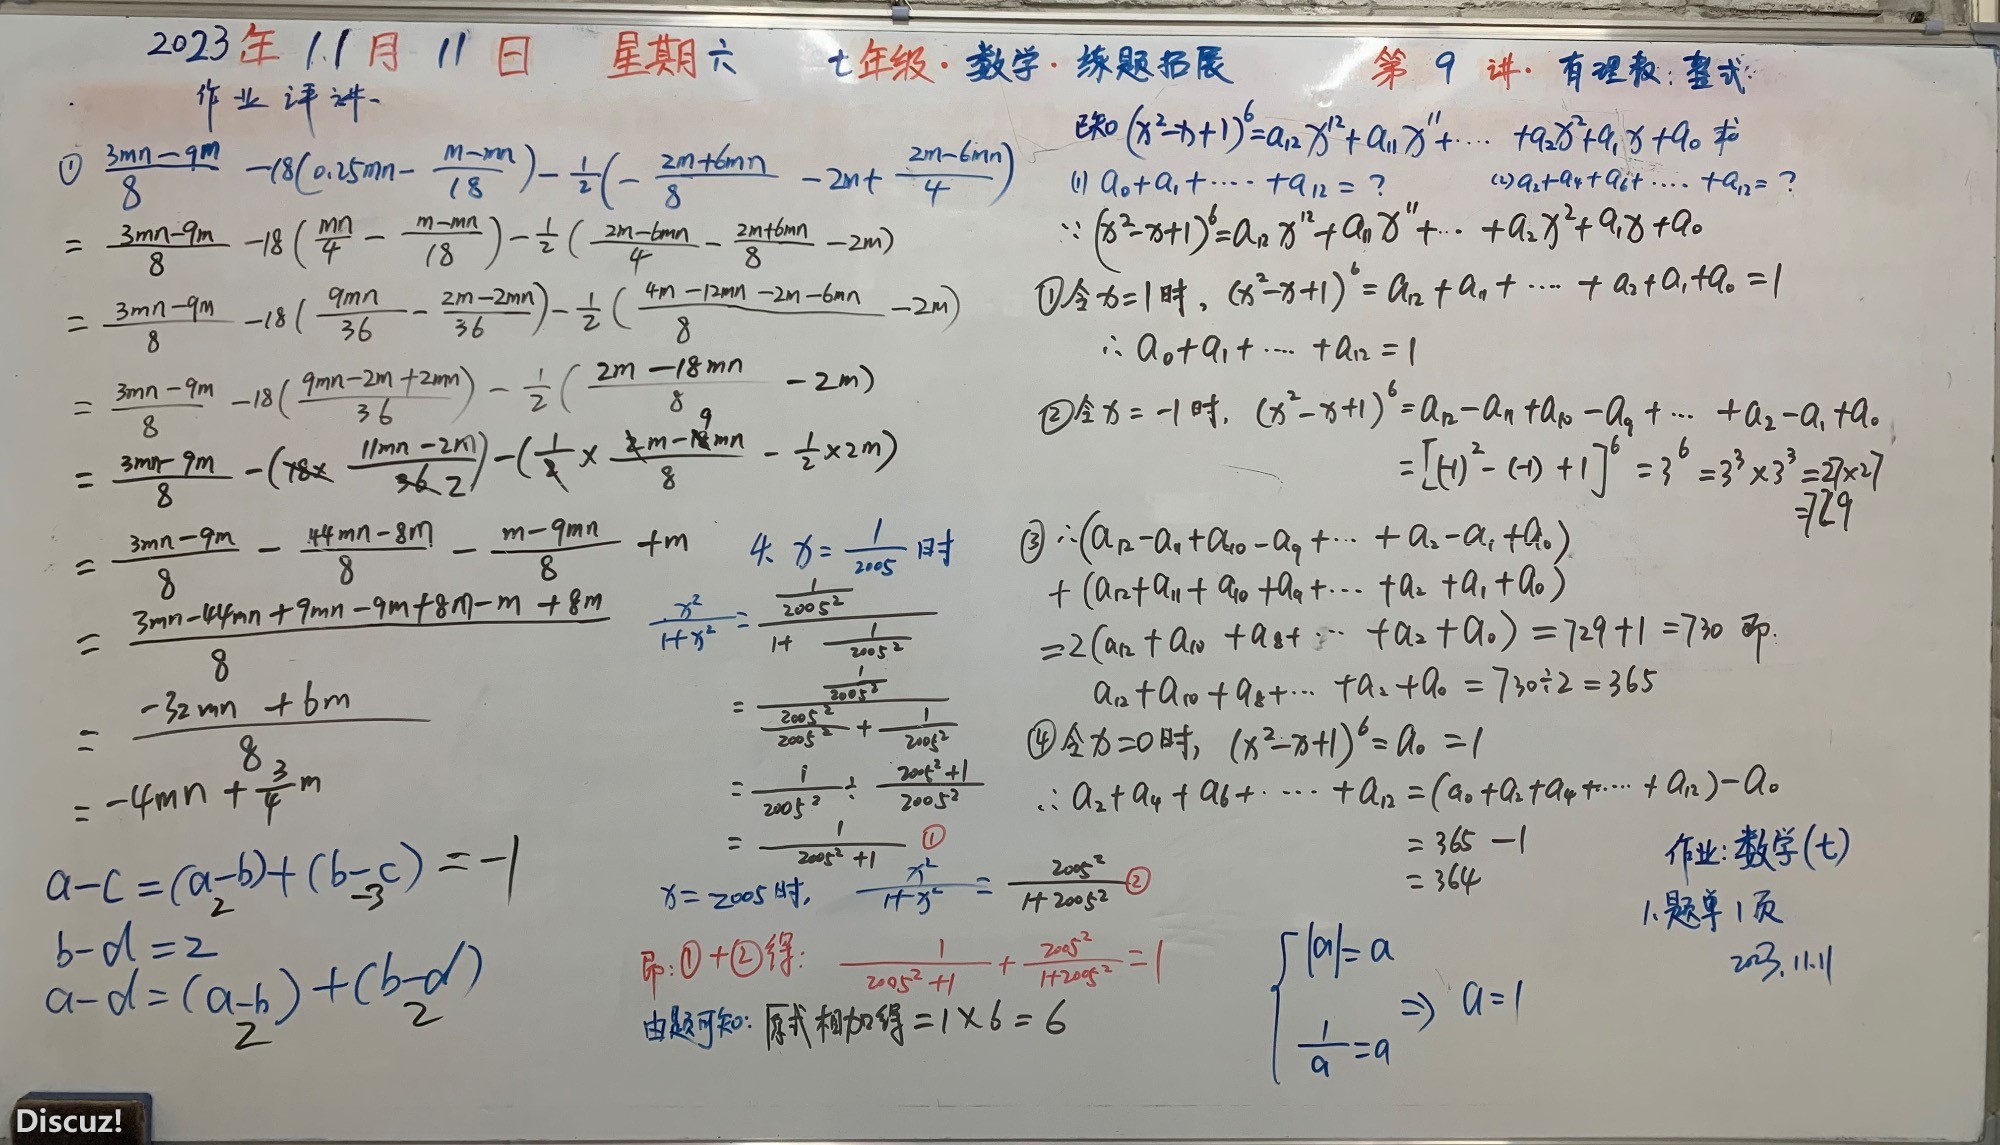 2023年11月11日 星期六 七年级·数学·练题拓展 第9讲·有理数:整式
作业评讲-
① \frac{3mn-9m}{8} -18(0.25mn- \frac{m-mn}{18})- \frac{1}{2}(- \frac{2m+6mn}{8} -2m+ \frac{2m-6mn}{4})
= \frac{3mn-9m}{8} -18(\frac{mn}{4} - \frac{m-mn}{18})- \frac{1}{2}(\frac{2m-6mn}{4} - \frac{2m+6mn}{8} -2m)
= \frac{3mn-9m}{8} -18(\frac{9mn}{36} - \frac{2m-2mn}{36})- \frac{1}{2}(\frac{4m-12mn-2m-6mn}{8} -2m)
= \frac{3mn-9m}{8} -18(\frac{9mn-2m+2mn}{36}) - \frac{1}{2}(\frac{2m-18mn}{8} -2m)
= \frac{3mn-9m}{8} -(18× \frac{11mn-2m}{36 2})-(\frac{1}{2} × \frac{2m-18 9mn}{8} - \frac{1}{2}×2m)
= \frac{3mn-9m}{8} - \frac{44mn-8m}{8} - \frac{m-9mn}{8} +m
= \frac{3mn-44mn+9mn-9m+8m-m+8m}{8}
= \frac{-32mn+6m}{8}
= -4mn+\frac{3}{4}m
a-c=(a-b)+(b-c)=-1
2 -3
b-d=2
a-d=(a-b)+(b-d)
2 2
4. x=\frac{1}{2005}时
\frac{x²}{1+x²} = \frac{\frac{1}{2005²}}{1+\frac{1}{2005²}}
= \frac{\frac{1}{2005²}}{\frac{2005²}{2005²}+\frac{1}{2005²}}
= \frac{1}{2005²} ÷ \frac{2005²+1}{2005²}
= \frac{1}{2005²+1} ①
x=2005时, \frac{x²}{1+x²} = \frac{2005²}{1+2005²} ②
即:①+②得: \frac{1}{2005²+1} + \frac{2005²}{1+2005²} =1
由题可知: 原式相加得=1×6=6
已知(x²-x+1)⁶=a₁₂x¹²+a₁₁x¹¹+…… +a₂x²+a₁x+a₀ 求
(1) a₀+a₁+…… +a₁₂=? (2)a₂+a₄+a₆+…… +a₁₂=?
∵(x²-x+1)⁶=a₁₂x¹²+a₁₁x¹¹+… +a₂x²+a₁x+a₀
①令x=1时, (x²-x+1)⁶=a₁₂+a₁₁+…… +a₂+a₁+a₀=1
∴a₀+a₁+…… +a₁₂=1
②令x=-1时, (x²-x+1)⁶=a₁₂-a₁₁+a₁₀-a₉+… +a₂-a₁+a₀
=[(-1)²-(-1)+1]⁶=3⁶=3³×3³=27×27
=729
③∴(a₁₂-a₁₁+a₁₀-a₉+… +a₂-a₁+a₀)
+(a₁₂+a₁₁+a₁₀+a₉+… +a₂+a₁+a₀)
=2(a₁₂+a₁₀+a₈+… +a₂+a₀)=729+1=730 即.
a₁₂+a₁₀+a₈+… +a₂+a₀=730÷2=365
④令x=0时, (x²-x+1)⁶=a₀=1
∴a₂+a₄+a₆+…… +a₁₂=(a₀+a₂+a₄+……+a₁₂)-a₀
=365-1
=364
{|a|=a
\frac{1}{a}=a
⇒ a=1
作业:数学(七)
1.题单1页
2023.11.11
Discuz!